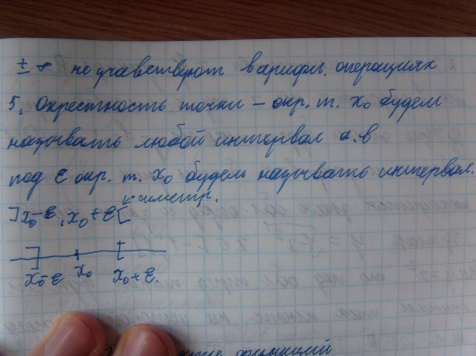 ± ∞ не участвуют в арифм. операциях
5. Окрестность точки – окр. т. x₀ будем
называть любой интервал a. b
под ε окр. т. x₀ будем называть интервал.
]x₀-ε, x₀+ε[ симетр.
x₀-ε x₀ x₀+ε.
функций